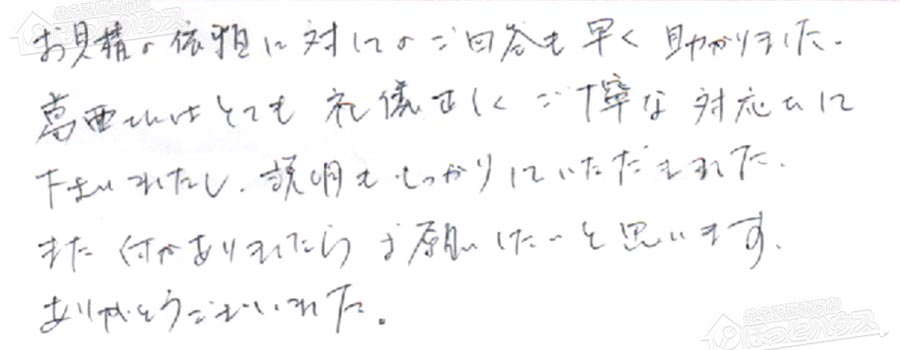 お見積の依頼に対してのご回答も早く助かりました。
葛西さんはとても礼儀正しくご丁寧な対応をして
下さいましたし、説明もしっかりしていただきました。
また何かありましたらお願いしたいと思います。
ありがとうございました。
ほっとハウス